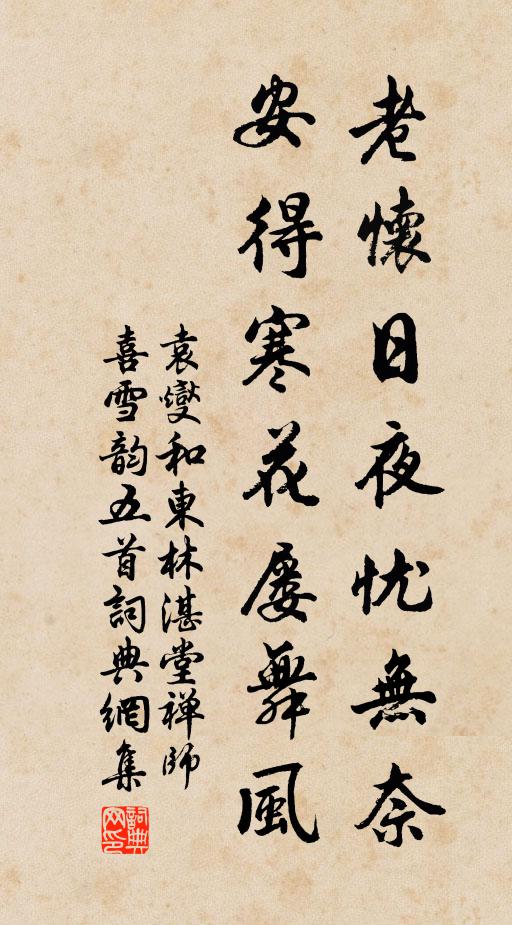 老懷日夜忧無奈
安得寒花屡舞風
袁燮和東林湛堂禅師
喜雪韵五首詞典網集
詞典网印